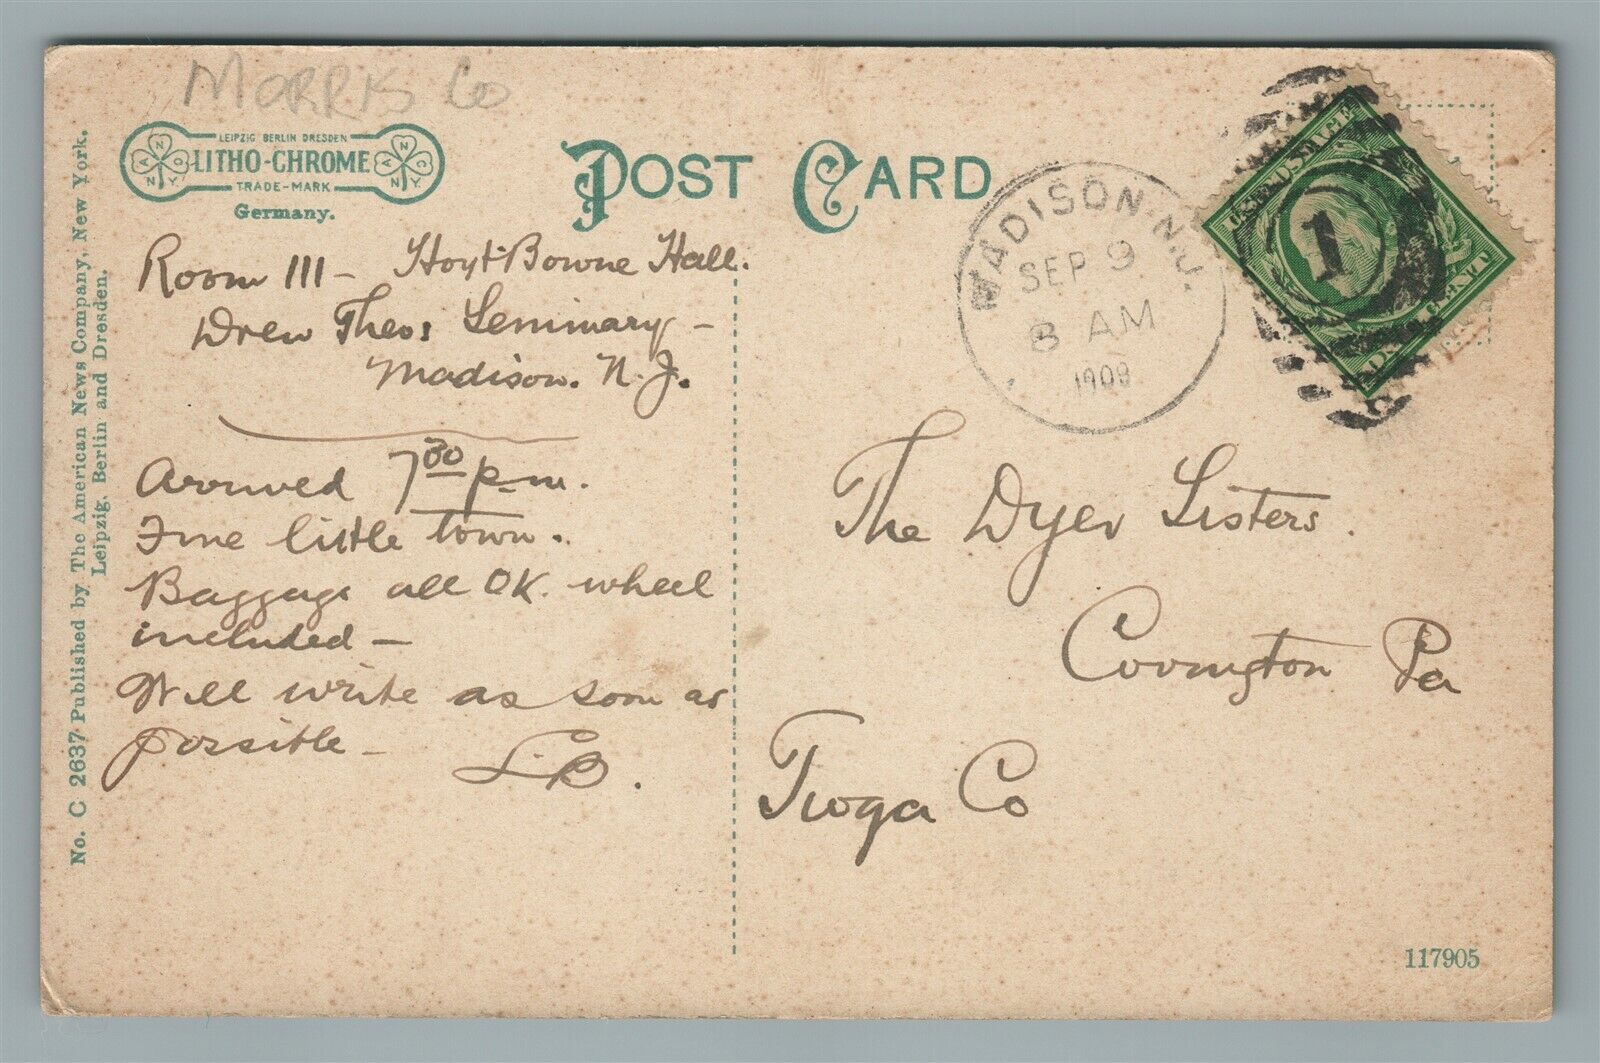 MORRIS Co
LEIPZIG BERLIN DRESDEN
LITHO-CHROME
TRADE-MARK
Germany.
POST CARD
No. C 2637 Published by The American News Company, New York.
Leipzig, Berlin and Dresden.
Room 111 - Hoyt-Bowne Hall.
Drew Theo. Seminary -
Madison. N. J.
Arrived 7 30 p.m.
Fine little town.
Baggage all OK. wheel
included -
Will write as soon as
possible -
L.B.
MADISON N.J.
SEP 9
8 AM
1909
U.S. POSTAGE
1
The Dyer Sisters.
Covington Pa
Tioga Co
117905